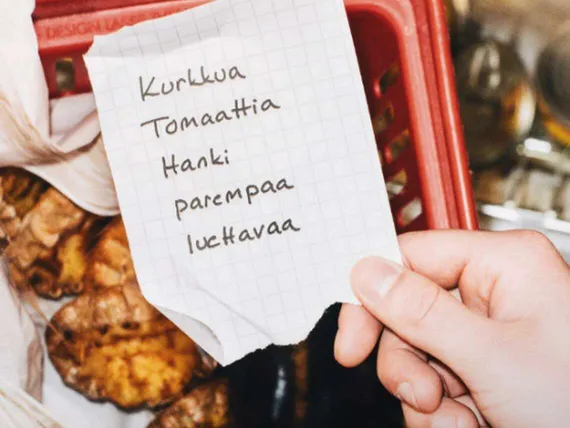 DESIGN LA
Kurkkua
Tomaattia
Hanki
parempaa
luettavaa